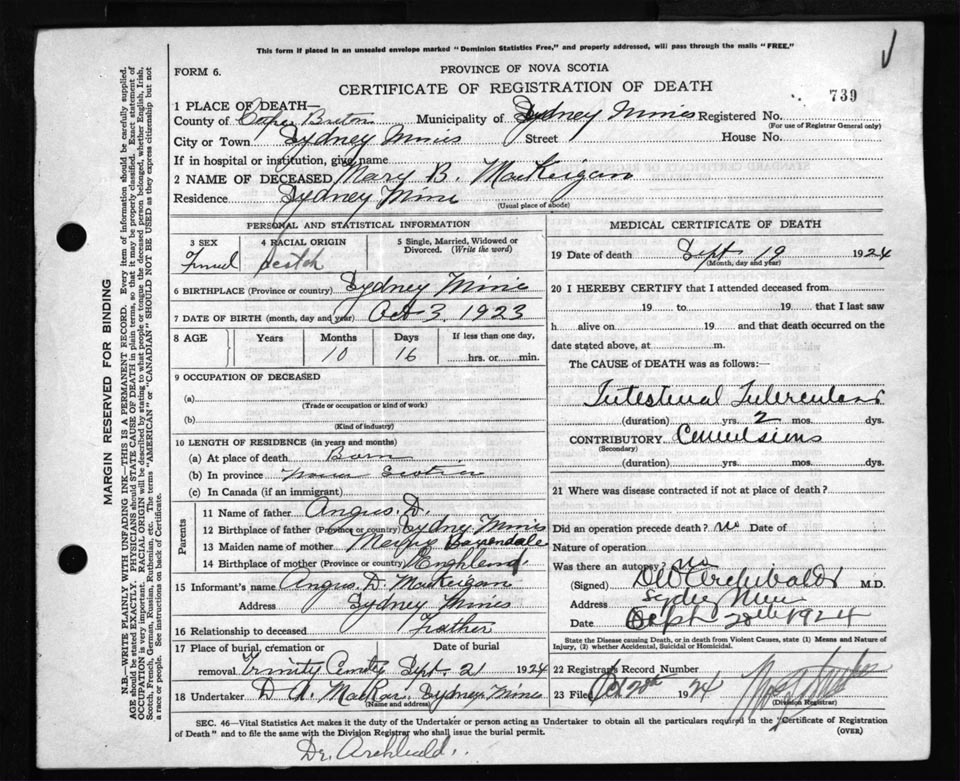 This form if placed in an unsealed envelope marked "Dominion Statistics Free," and properly addressed, will pass through the mails "FREE."
FORM 6.
PROVINCE OF NOVA SCOTIA
CERTIFICATE OF REGISTRATION OF DEATH
739
1 PLACE OF DEATH—
County of Cape Breton Municipality of Sydney Mines Registered No.
(For use of Registrar General only)
City or Town Sydney Mines Street House No.
If in hospital or institution, give name
2 NAME OF DECEASED Mary B. MacKeigan
Residence Sydney Mine
(Usual place of abode)
PERSONAL AND STATISTICAL INFORMATION
3 SEX 4 RACIAL ORIGIN 5 Single, Married, Widowed or Divorced. (Write the word)
Scotch
6 BIRTHPLACE (Province or country) Sydney Mine
7 DATE OF BIRTH (month, day and year) Oct 3. 1923
8 AGE Years Months Days If less than one day,
10 16 hrs. or min.
9 OCCUPATION OF DECEASED
(a)
(Trade or occupation or kind of work)
(b)
(Kind of industry)
10 LENGTH OF RESIDENCE (in years and months)
(a) At place of death Born
(b) In province Nova Scotia
(c) In Canada (if an immigrant)
Parents
11 Name of father Angus. D.
12 Birthplace of father (Province or country) Sydney Mines
13 Maiden name of mother
14 Birthplace of mother (Province or country) Enghland
15 Informant's name Angus. D. MacKeigan
Address Sydney Mines
16 Relationship to deceased Frather
17 Place of burial, cremation or removal Date of burial
Trinity Sept. 21 1924
18 Undertaker D. A. Sydney Mines
(Name and address)
MEDICAL CERTIFICATE OF DEATH
19 Date of death Sept 19 1924
(Month, day and year)
20 I HEREBY CERTIFY that I attended deceased from
19 to 19 that I last saw
h alive on 19 and that death occurred on the
date stated above, at m.
The CAUSE OF DEATH was as follows:
Intestinal Tuberculosis
(duration) yrs. 2 mos. dys.
CONTRIBUTORY Convulsions
(Secondary)
(duration) yrs. mos. dys.
21 Where was disease contracted if not at place of death?
Did an operation precede death? no Date of
Nature of operation
Was there an autopsy? no
(Signed) Archibald M.D.
Address
Date Sept 20th 1924
State the Disease causing Death, or in death from Violent Causes, state (1) Means and Nature of Injury, (2) whether Accidental, Suicidal or Homicidal.
22 Registrars Record Number
23 Filed 1924
(Division Registrar)
SEC. 46—Vital Statistics Act makes it the duty of the Undertaker or person acting as Undertaker to obtain all the particulars required in the "Certificate of Registration
of Death" and to file the same with the Division Registrar who shall issue the burial permit.
(OVER)
Dr. Archibald.
MARGIN RESERVED FOR BINDING
N.B.—WRITE PLAINLY WITH UNFADING INK—THIS IS A PERMANENT RECORD. Every item of information should be carefully supplied.
AGE should be stated EXACTLY. PHYSICIANS should STATE CAUSE OF DEATH in plain terms, so that it may be properly classified. Exact statement of
OCCUPATION is very important. RACIAL ORIGIN will be described by stating to what people or tongue the deceased person belonged, whether English, Irish,
Scotch, French, German, Russian, Ruthenian, etc. The terms "AMERICAN" or "CANADIAN" SHOULD NOT BE USED as they express citizenship but not
a race or people. See instructions on back of Certificate.